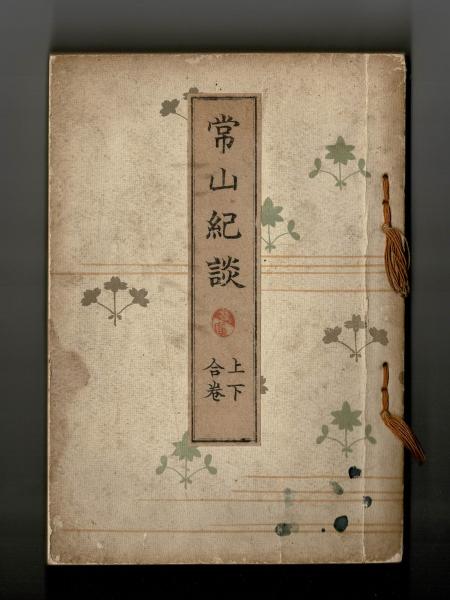 常山紀談
上下
合巻